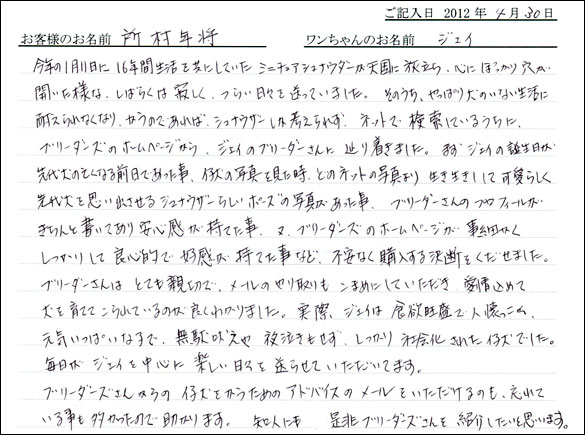 ご記入日 2012年 4月 30日
お客様のお名前 所村年将 ワンちゃんのお名前 ジェイ
今年の1月11日に16年間生活を共にしていたミニチュアシュナウザーが天国に旅立ち、心にぽっかり穴が
開いた様な、しばらくは寂しく、つらい日々を送っていました。そのうち、やっぱり犬のいない生活に
耐えられなくなり、かうのであれば、シュナウザーしか考えられず、ネットで検索しているうちに、
ブリーダーズのホームページから、ジェイのブリーダーさんに辿り着きました。まずジェイの誕生日が
先代犬の亡くなる前日であった事、仔犬の写真を見た時、どのネットの写真より生き生きして可愛らしく
先代犬を思い出させるシュナウザーらしいポーズの写真があった事、ブリーダーさんのプロフィールが
きちんと書いてあり安心感が持てた事、又、ブリーダーズのホームページが事細かく
しっかりして良心的で好感が持てた事など、不安なく購入する決断をくだせました。
ブリーダーさんは とても親切で、メールのやり取りもこまめにしていただき 愛情込めて
犬を育ててこられているのが良くわかりました。実際、ジェイは食欲旺盛で人懐っこく、
元気いっぱいなまで、無駄吠えや夜泣きもせず、しっかり社会化された仔犬でした。
毎日がジェイを中心に楽しい日々を送らせていただいてます。
ブリーダーズさんからの仔犬をかうためのアドバイスのメールをいただけるのも、忘れて
いる事も多かったので助かります。知人にも 是非ブリーダーズさんを紹介したいと思います。